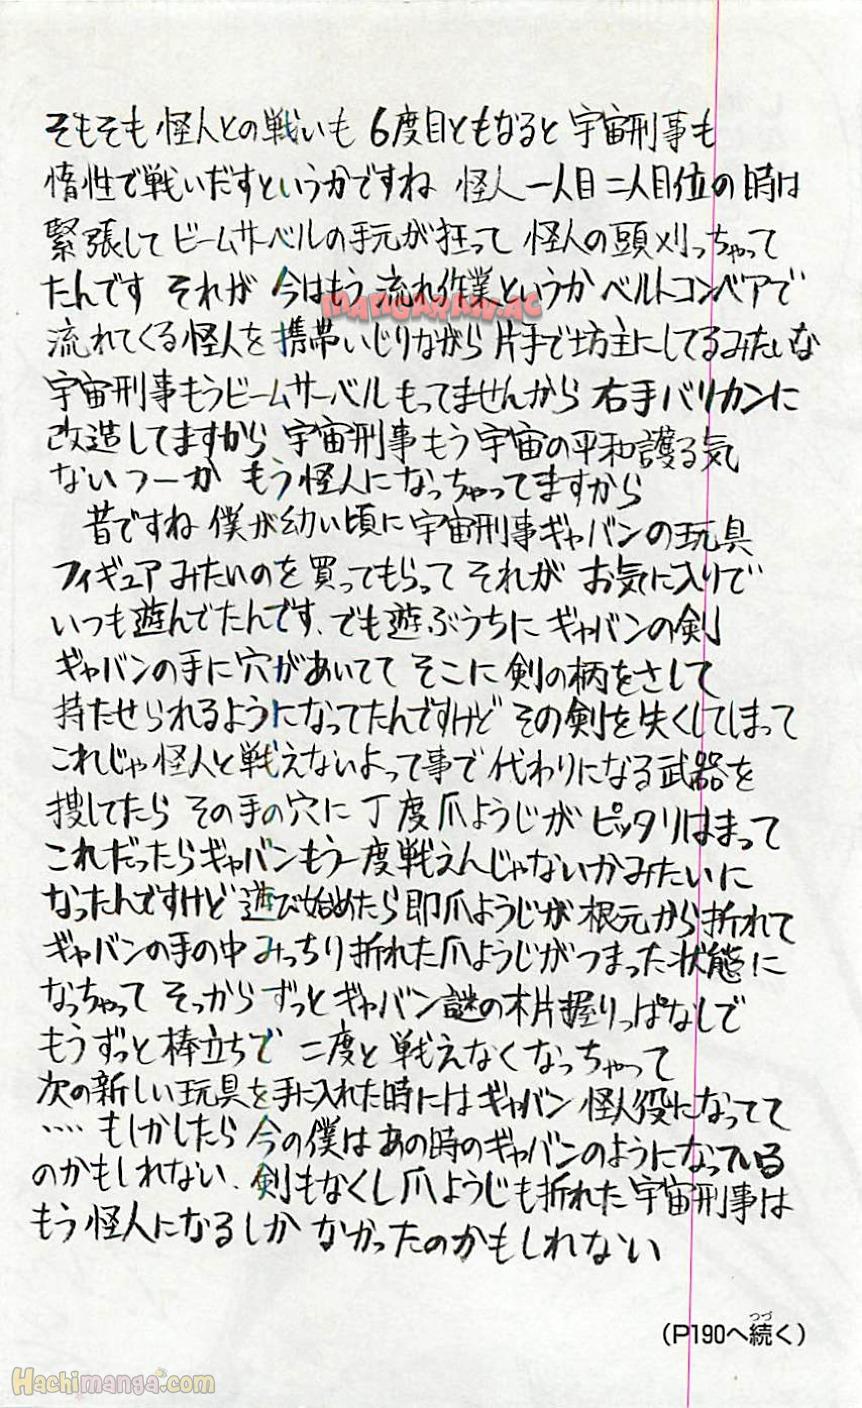 そもそも怪人との戦いも 6度目ともなると 宇宙刑事も
惰性で戦いだすというかですね 怪人一人目二人目位の時は
緊張してビームサーベルの手元が狂って 怪人の頭刈っちゃって
たんです それが 今はもう流れ作業というか ベルトコンベアで
流れてくる怪人を携帯いじりながら片手で坊主にしてるみたいな
宇宙刑事もうビームサーベルもってませんから 右手バリカンに
改造してますから 宇宙刑事もう宇宙の平和護る気
ないつーか もう怪人になっちゃってますから
昔ですね 僕が幼い頃に宇宙刑事ギャバンの玩具
フィギュアみたいのを買ってもらって それが お気に入りで
いつも遊んでたんです、でも遊ぶうちに ギャバンの剣
ギャバンの手に穴があいてて そこに 剣の柄をさして
持たせられるようになってたんですけど その剣を失くしてしまって
これじゃ怪人と戦えないよって事で 代わりになる武器を
捜してたら その手の穴に 丁度爪ようじが ピッタリはまって
これだったらギャバンもう一度戦えんじゃないかみたいに
なったんですけど 遊び始めたら即爪ようじが根元から折れて
ギャバンの手の中みっちり折れた爪ようじがつまった状態に
なっちゃって そっからずっとギャバン謎の木片握りっぱなしで
もうずっと棒立ちで 二度と戦えなくなっちゃって
次の新しい玩具を手に入れた時にはギャバン 怪人役になってて
‥‥ もしかしたら今の僕はあの時のギャバンのようになっている
のかもしれない、剣もなくし爪ようじも折れた宇宙刑事は
もう怪人になるしか なかったのかもしれない
（P190へ続く）
つづ
MANGARAW.AC
Hachimanga.com